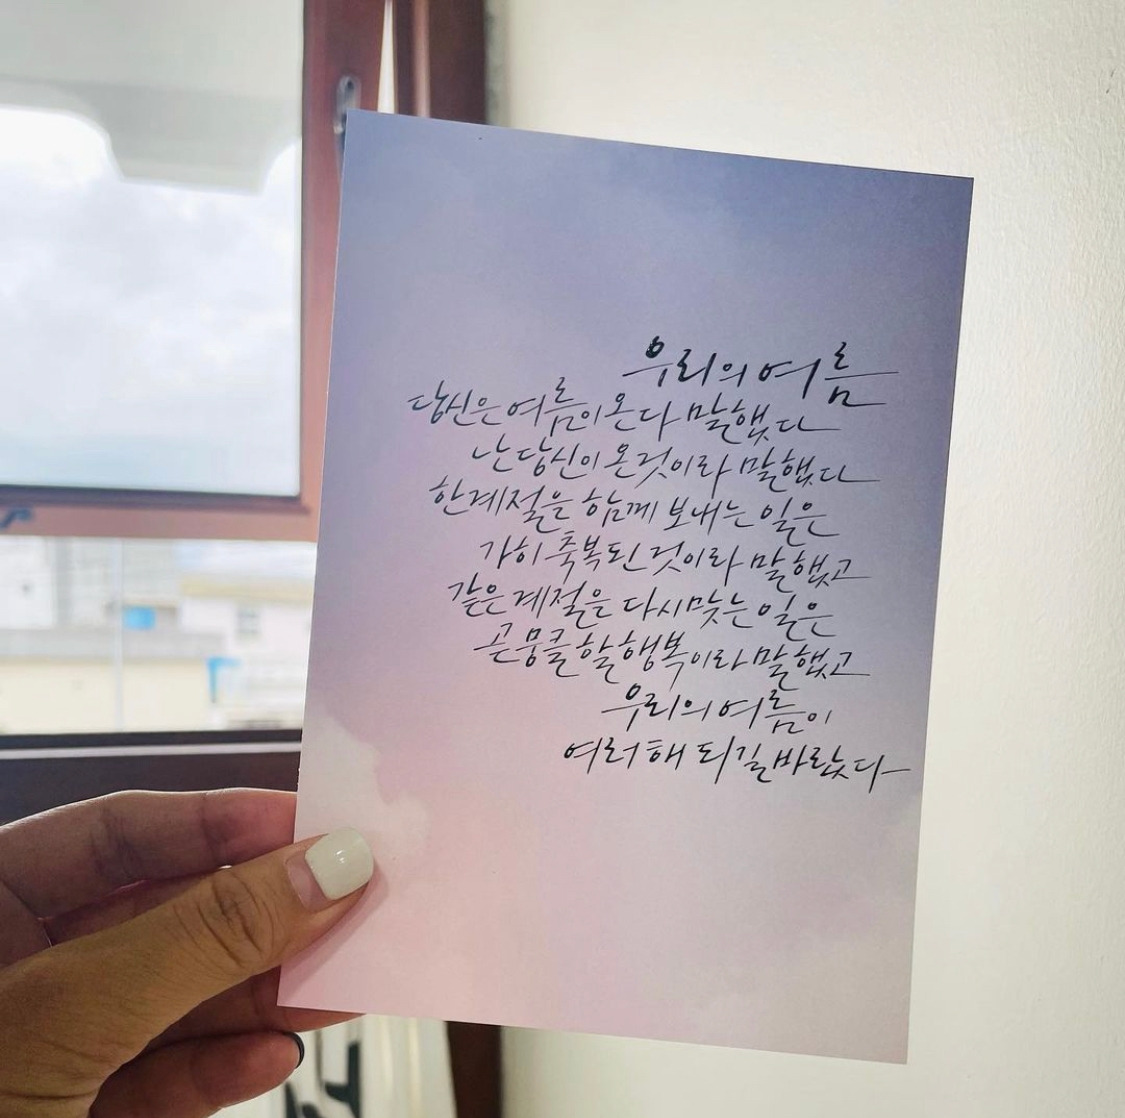 우리의 여름
당신은 여름이 온다 말했다
난 당신이 온것이라 말했다
한계절을 함께 보내는 일은
가히 축복된 것이라 말했고
같은 계절을 다시 맞는 일은
곧 뭉클할 행복이라 말했고
우리의 여름이
여러해 되길 바랐다